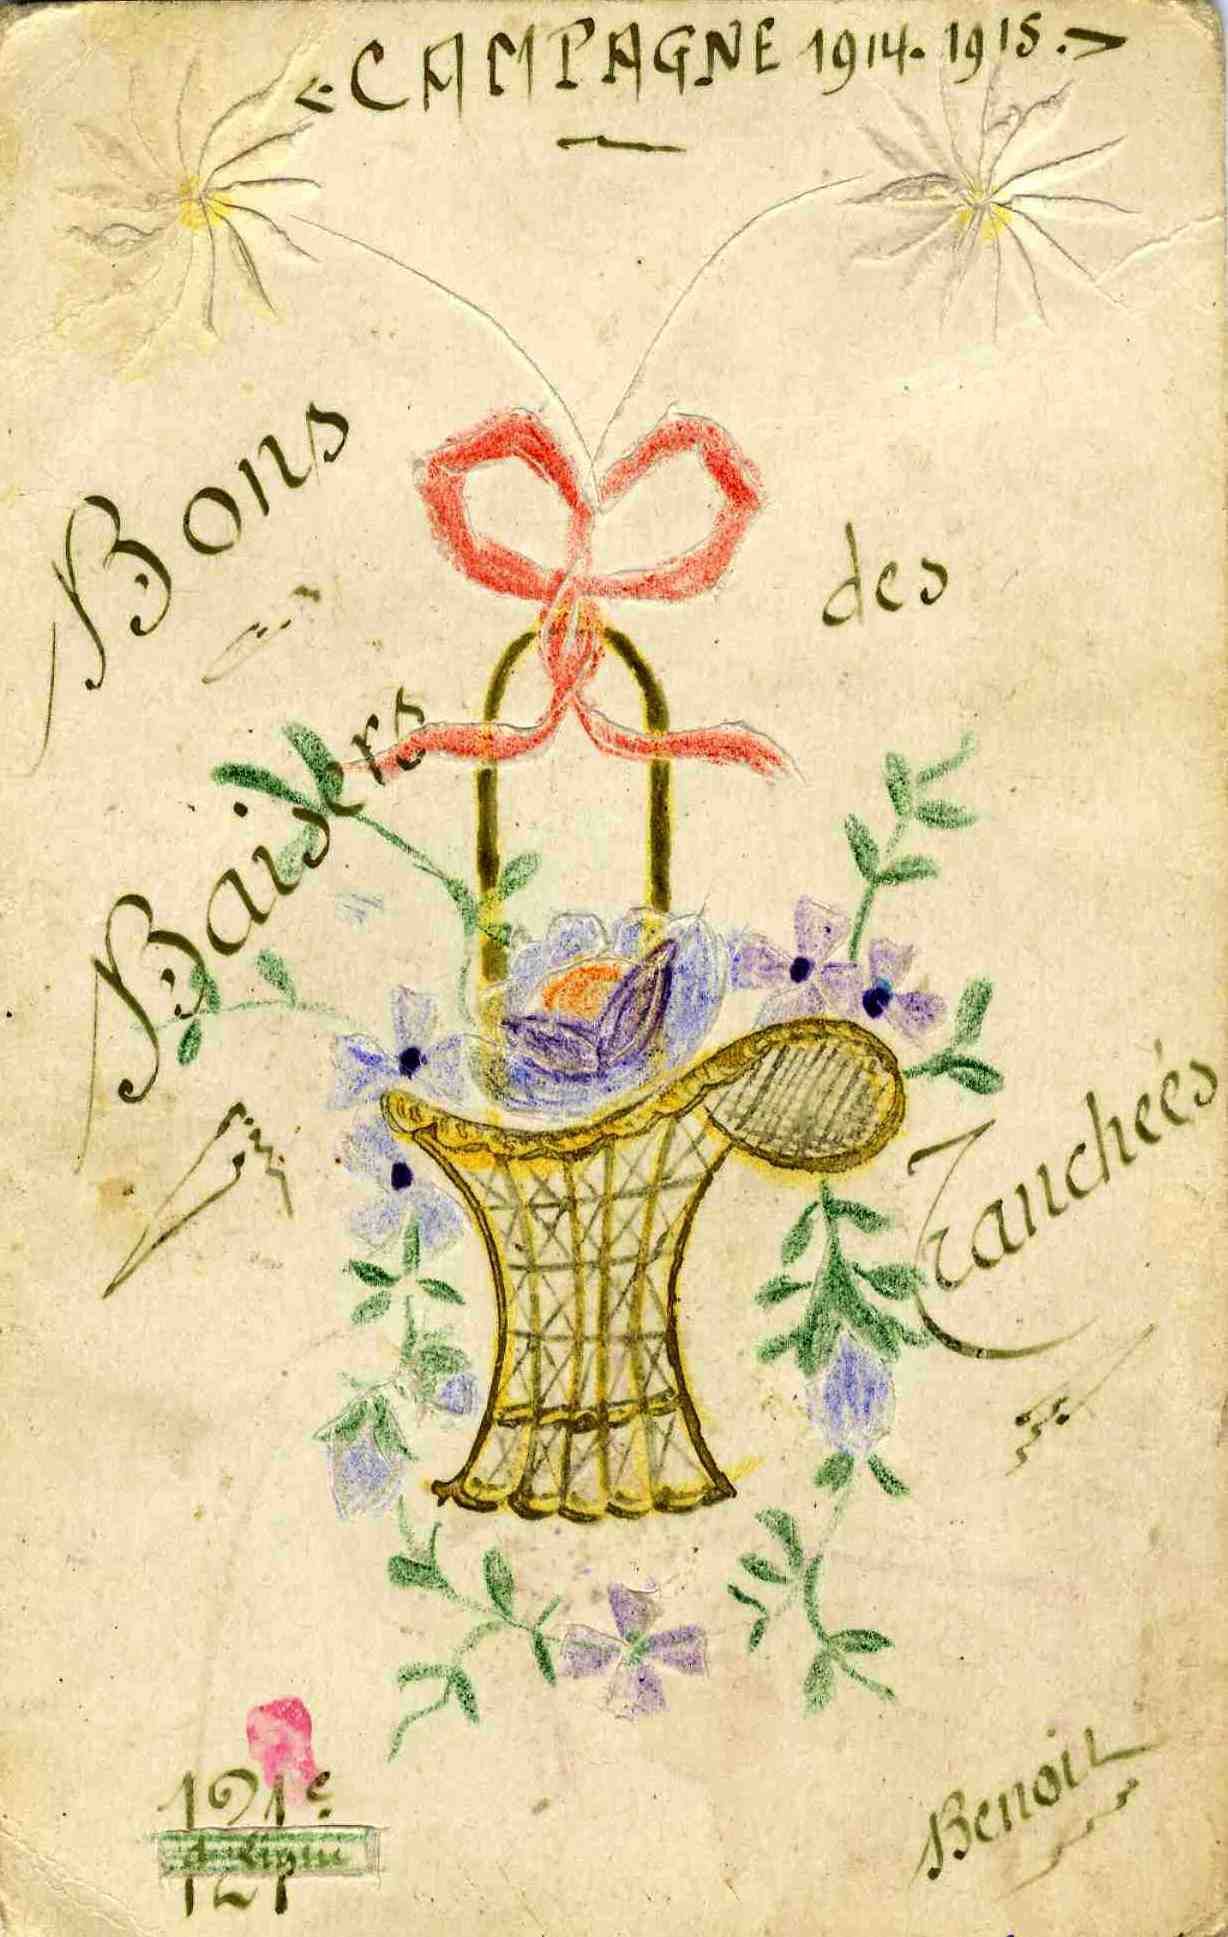 « CAMPAGNE 1914. 1915. »
Bons
des
Baisers
Tranchées
121e
de Ligne
121
Benoit